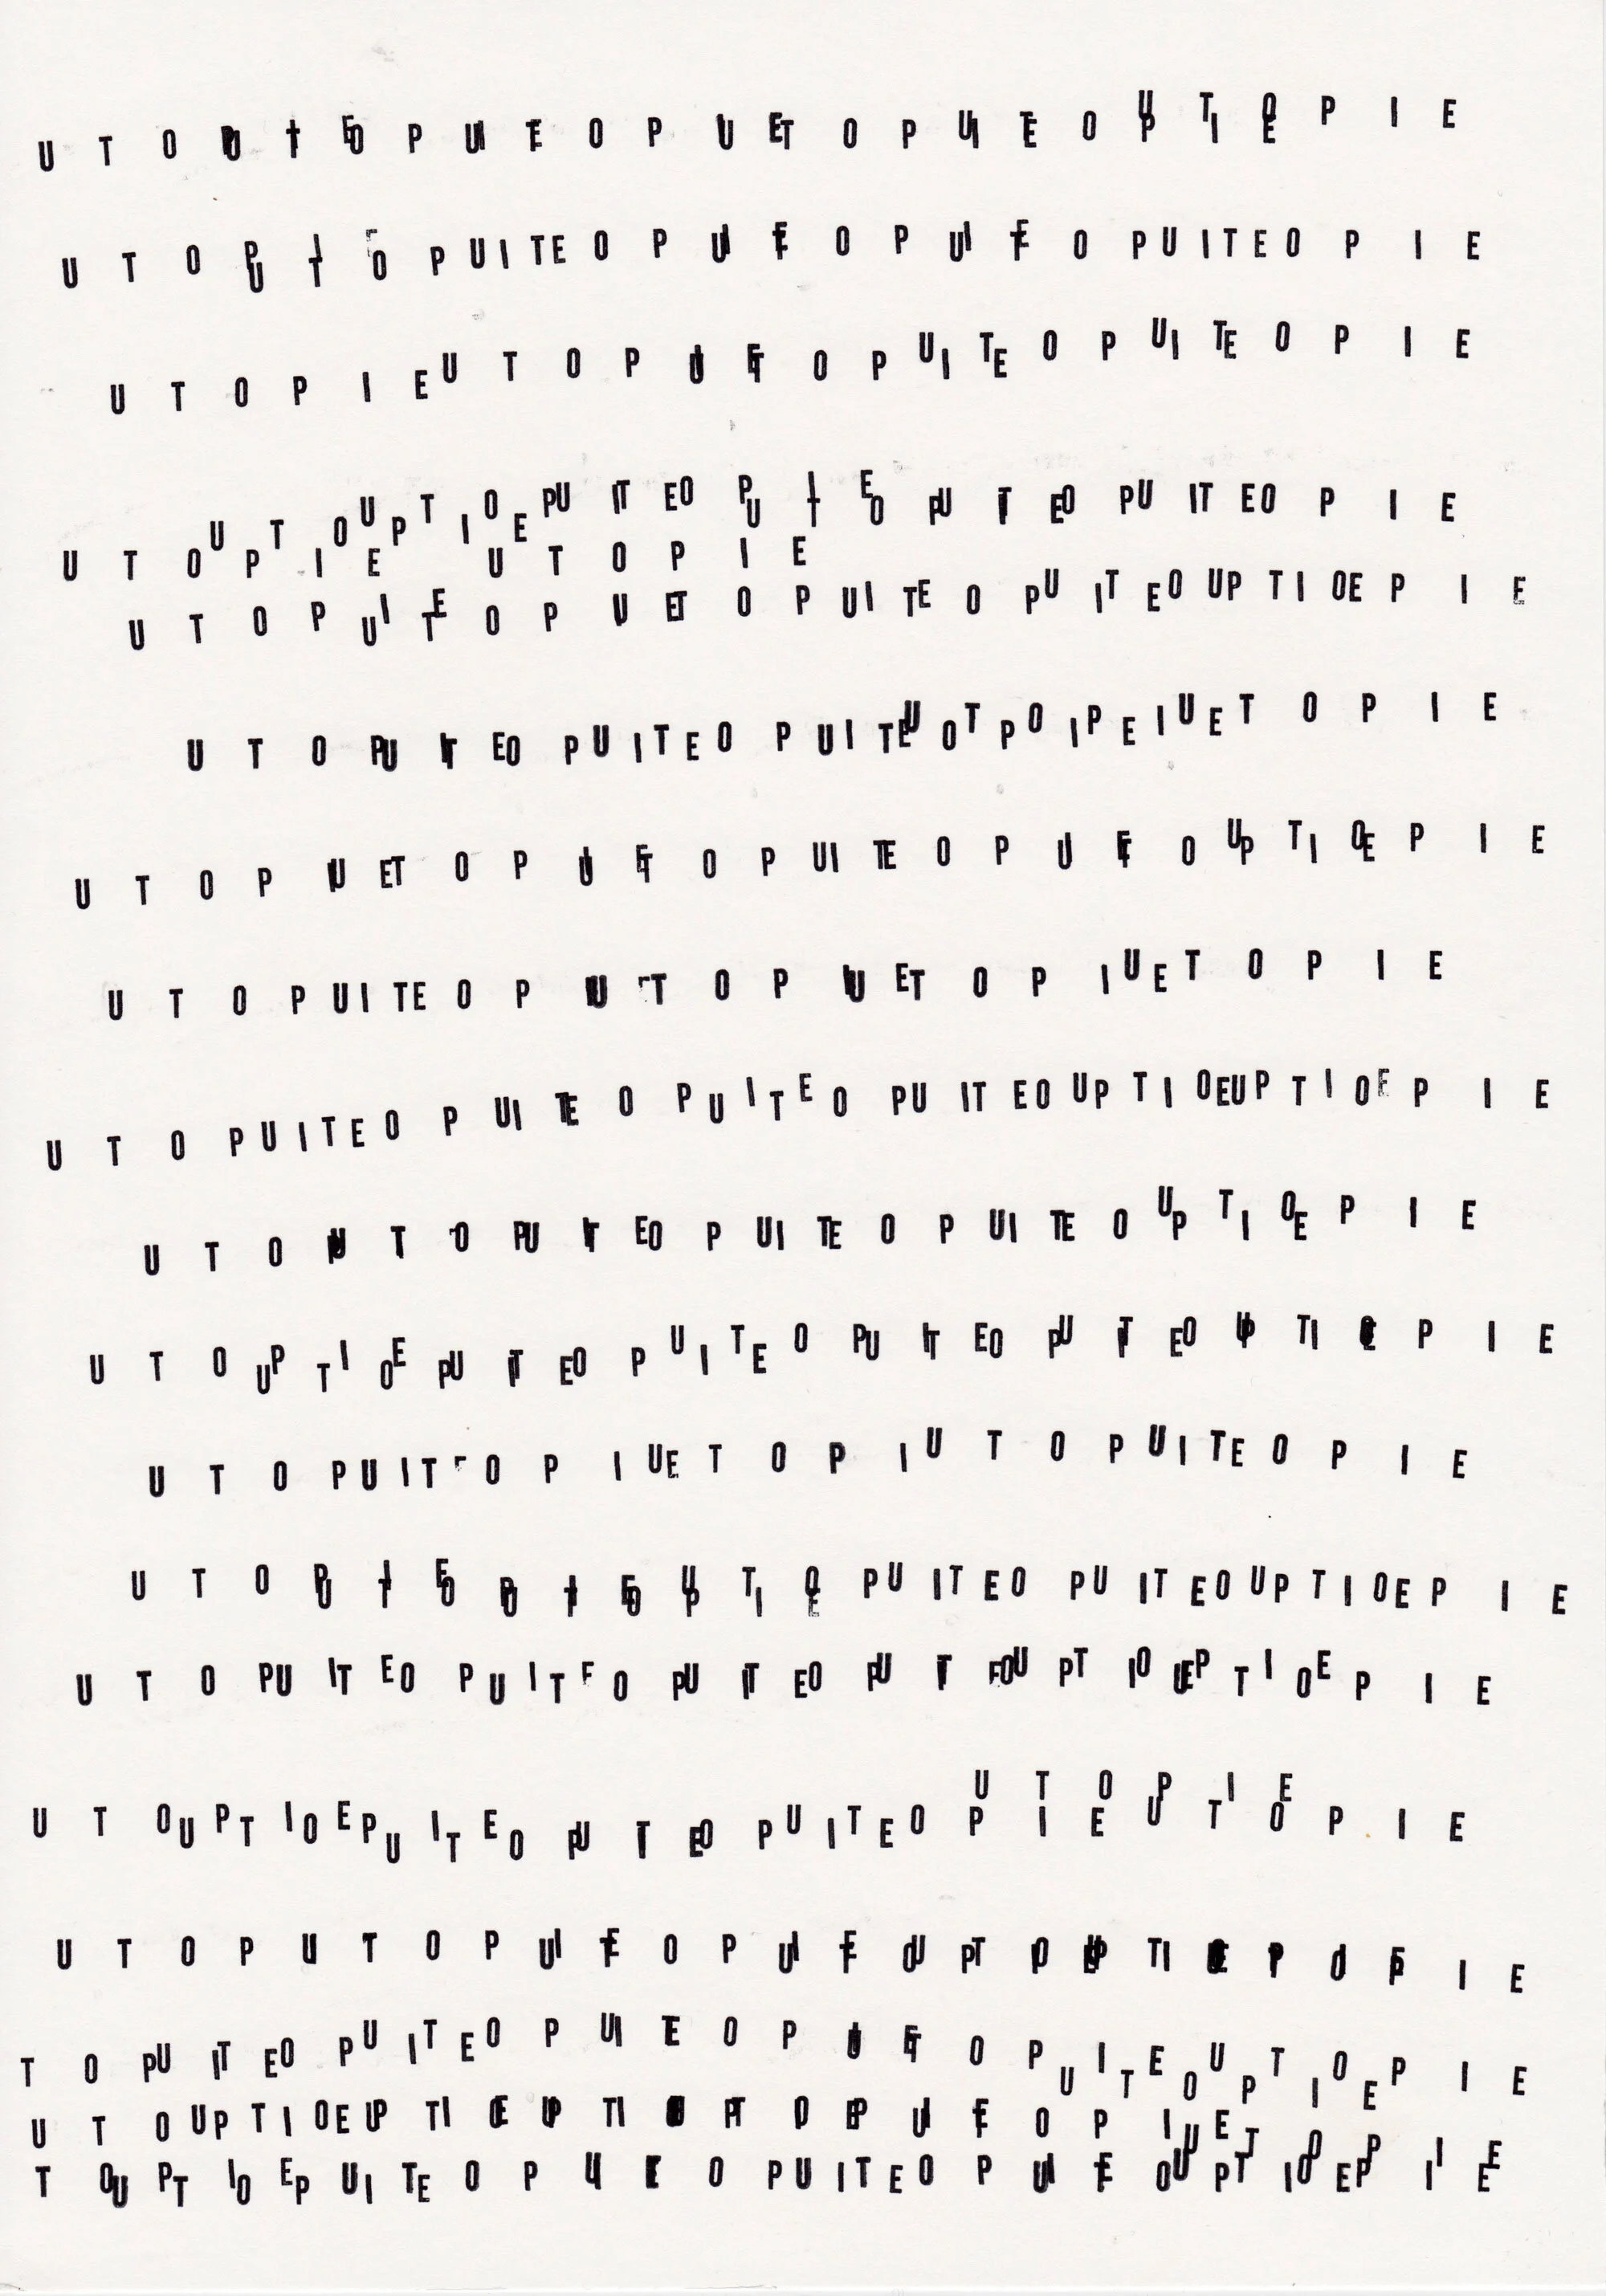 U T O P U I T E O P U I T E O P I U E T O P U I T E O U P T I O E P I E
U T O P U I T E O P U I T E O P U I T E O P U I T E O P U I T E O P I E
U T O P I E U T O P U I E T O P U I T E O P U I T E O P I E
U T O U P T I O E U P T I O E P U I T E O P U I T E O P U I T E O P U I T E O P I E
U T O P I E
U T O P U I T E O P I U E T O P U I T E O P U I T E O U P T I O E P I E
U T O P U I T E O P U I T E O P U I T E U O T P O I P E I U E T O P I E
U T O P I U E T O P U I E T O P U I T E O P U I T E O U P T I O E P I E
U T O P U I T E O P I U E T O P I U E T O P I U E T O P I E
U T O P U I T E O P U I T E O P U I T E O P U I T E O U P T I O E U P T I O E P I E
U T O P U I T E O P U I T E O P U I T E O P U I T E O U P T I O E P I E
U T O U P T I O E P U I T E O P U I T E O P U I T E O P U I T E O U P T I O E P I E
U T O P U I T E O P I U E T O P I U T O P U I T E O P I E
U T O P U I T E O P U I T E O U P T I O E P U I T E O P U I T E O U P T I O E P I E
U T O P U I T E O P U I T E O P U I T E O P U I T E O U P T I O U E P T I O E P I E
U T O P I E
U T O U P T I O E P U I T E O P U I T E O P U I T E O P I E U T O P I E
U T O P U T O P U I T E O P U I T E O U P T I O E U P T I O E P I E
T O P U I T E O P U I T E O P U I T E O P U I E T O P U I T E O U P T I O E P I E
U T O U P T I O E U P T I O E U P T I O E P U I T E O P I U E T O P I E
T O U P T I O E P U I T E O P U I T E O P U I T E O P U I T E O U P T I O E P I E